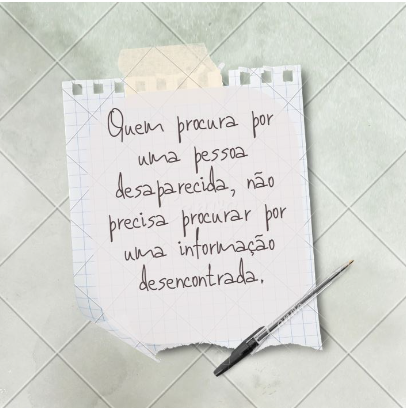 Quem procura por
uma pessoa
desaparecida, não
precisa procurar por
uma informação
desencontrada.